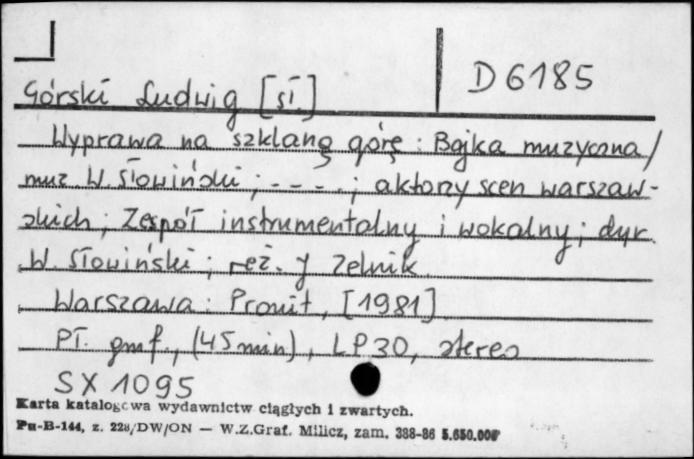 D 6185
Górski Ludwig [sł.]
Wyprawa na szklaną górę : Bajka muzyczna /
muz W. Słowiński ; - - - . ; aktorzy scen warszaw-
skich ; Zespół instrumentalny i wokalny ; dyr.
W. Słowiński ; reż. J Zelnik.
Warszawa : Pronit, [1981]
Pł. gmf., (45 min), LP 30, stereo
SX 1095
Karta katalogowa wydawnictw ciągłych i zwartych.
Pu-B-144, z. 228/DW/ON — W.Z.Graf. Milicz, zam. 388-86 5.650.000